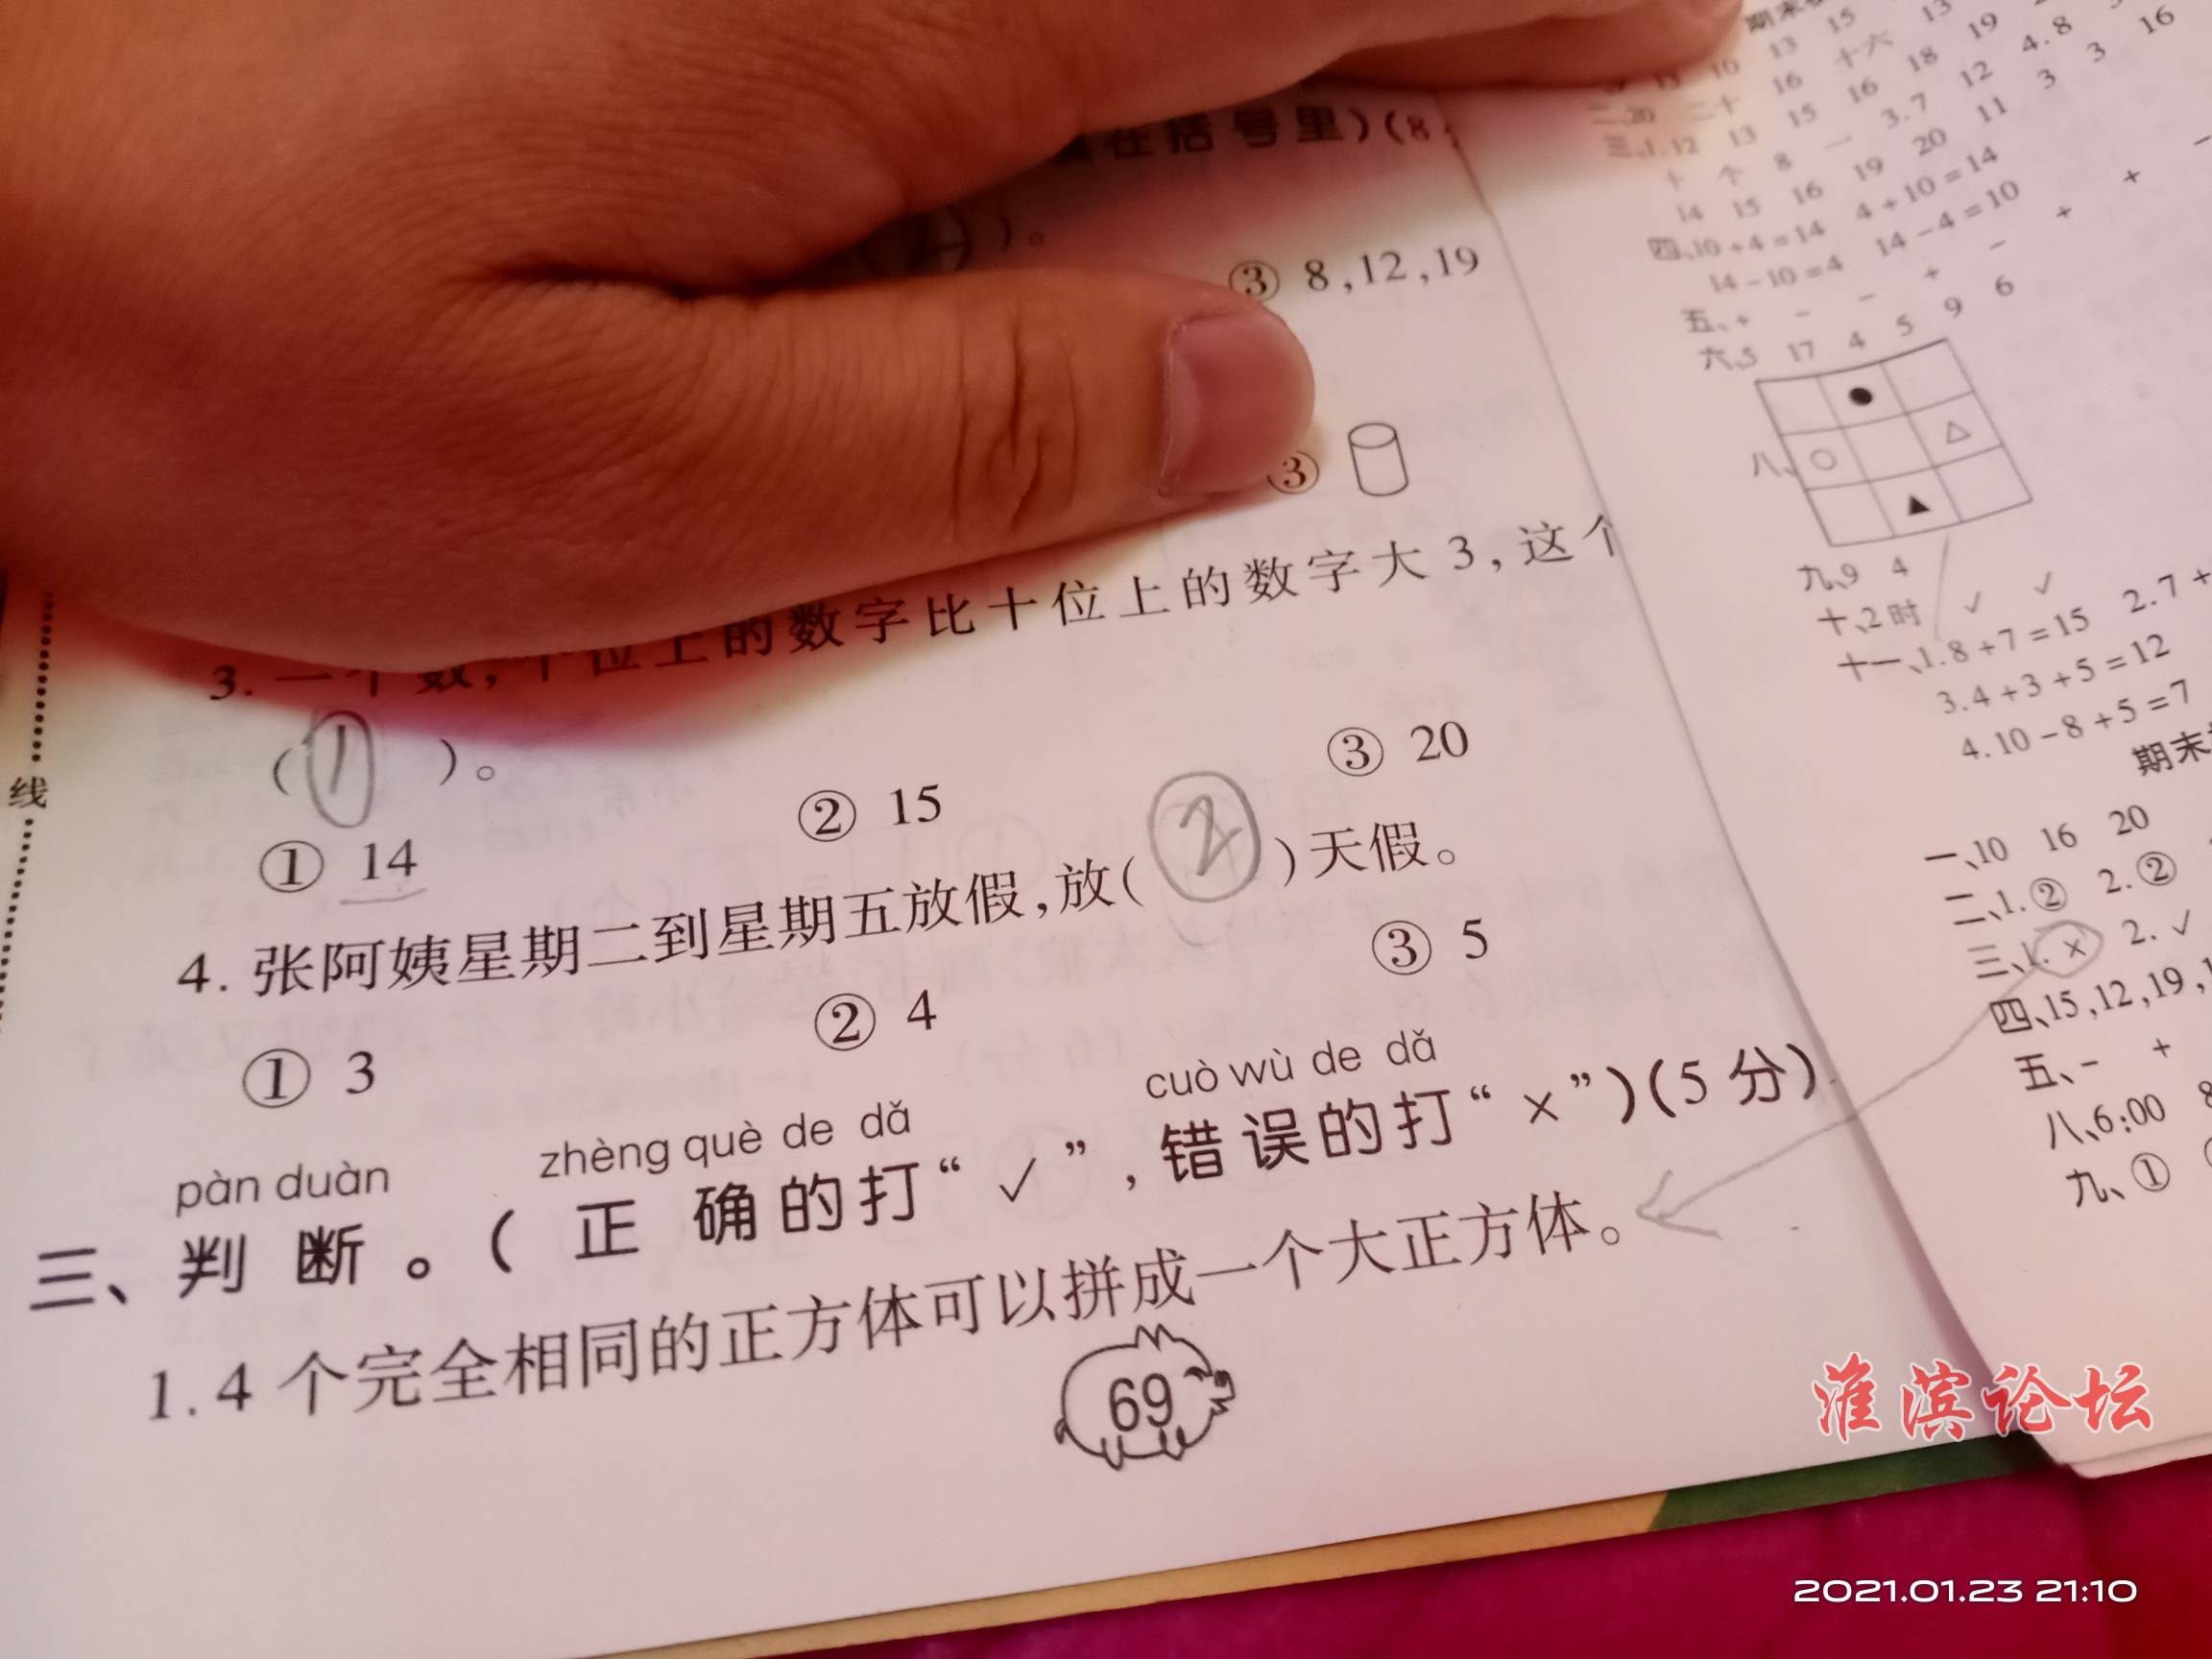 在括号里)(8
)。
③ 8,12,19
③
3. 一个数,个位上的数字比十位上的数字大3,这个
(① )。
① 14 ② 15 ③ 20
4. 张阿姨星期二到星期五放假,放(②)天假。
① 3 ② 4 ③ 5
pàn duàn zhèng què de dǎ cuò wù de dǎ
三、判断。(正确的打“✓”,错误的打“×”)(5分)
1.4个完全相同的正方体可以拼成一个大正方体。
69
线
期末
13 15 13
16 十六
二、20 二十 16 18 19
三、1.12 13 15 16 12 4.8
十 个 8 一 3.7 11 3 3 16
14 15 16 19 20
四、10+4=14 4+10=14
14-10=4 14-4=10
五、+ - - + - + + -
六、5 17 4 5 9 6
八、
九、9 4
十、2时 ✓ ✓
十一、1.8+7=15 2.7+
3.4+3+5=12
4.10-8+5=7
期末
一、10 16 20
二、1.② 2.②
三、1.× 2.✓
四、15,12,19,
五、- +
八、6:00 8
九、①
淮滨论坛
2021.01.23 21:10